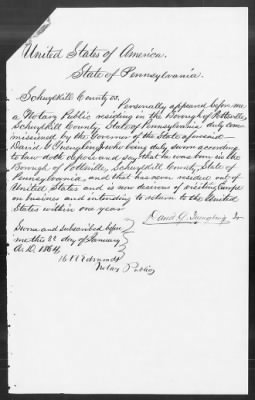 United States of America.
State of Pennsylvania.
Schuylkill County ss.
Personally appeared before me
a Notary Public residing in the Borough of Pottsville,
Schuylkill County, State of Pennsylvania duly com-
missioned by the Governor of the State aforesaid—
David G Yuengling who being duly sworn according
to law doth depose and say that he was born in the
Borough of Pottsville, Schuylkill County, State of
Pennsylvania, and that has never resided out of
United States and is now desirous of visiting Europe
on business and intending to return to the United
States within one year
David G. Yuengling Jr
Sworn and subscribed before
me this 22 day of January
A.D. 1864,
Notary Public